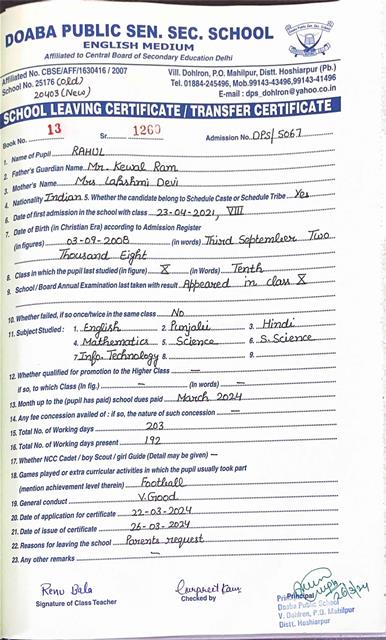 DOABA PUBLIC SEN. SEC. SCHOOL
ENGLISH MEDIUM
Affiliated to Central Board of Secondary Education Delhi
Affiliated No. CBSE/AFF/1630416 / 2007
School No. 25176 (Old)
20403 (New)
Vill. Dohlron, P.O. Mahilpur, Distt. Hoshiarpur (Pb.)
Tel. 01884-245496, Mob.99143-43496,99143-41496
E-mail : dps_dohlron@yahoo.co.in
SCHOOL LEAVING CERTIFICATE / TRANSFER CERTIFICATE
Book No. 13 Sr. 1260 Admission No. DPS/5067
1. Name of Pupil RAHUL
2. Father's/Guardian Name Mr. Kewal Ram
3. Mother's Name Mrs Lakshmi Devi
4. Nationality Indian 5. Whether the candidate belong to Schedule Caste or Schedule Tribe Yes
6. Date of first admission in the school with class 23-04-2021, VIII
7. Date of Birth (in Christian Era) according to Admission Register
(in figures) 03-09-2008 (in words) Third September Two
Thousand Eight
8. Class in which the pupil last studied (in figure) X (in Words) Tenth
9. School / Board Annual Examination last taken with result Appeared in class X
10. Whether failed, if so once/twice in the same class No
11. Subject Studied : 1. English 2. Punjabi 3. Hindi
4. Mathematics 5. Science 6. S.Science
7. Info. Technology 8. 9.
12. Whether qualified for promotion to the Higher Class —
if so, to which Class (In fig.) — (In words) —
13. Month up to the (pupil has paid) school dues paid March 2024
14. Any fee concession availed of : if so, the nature of such concession —
15. Total No. of Working days 203
16. Total No. of Working days present 192
17. Whether NCC Cadet / boy Scout / girl Guide (Detail may be given) —
18. Games played or extra curricular activities in which the pupil usually took part
(mention achievement level therein) Football
19. General conduct V.Good
20. Date of application for certificate 22-03-2024
21. Date of issue of certificate 26-03-2024
22. Reasons for leaving the school Parents request
23. Any other remarks —
Renu Bala
Signature of Class Teacher
Gurpreet Kaur
Checked by
26/3/24
Principal
Doaba Public School
V. Dohlron, P.O. Mahilpur
Distt. Hoshiarpur